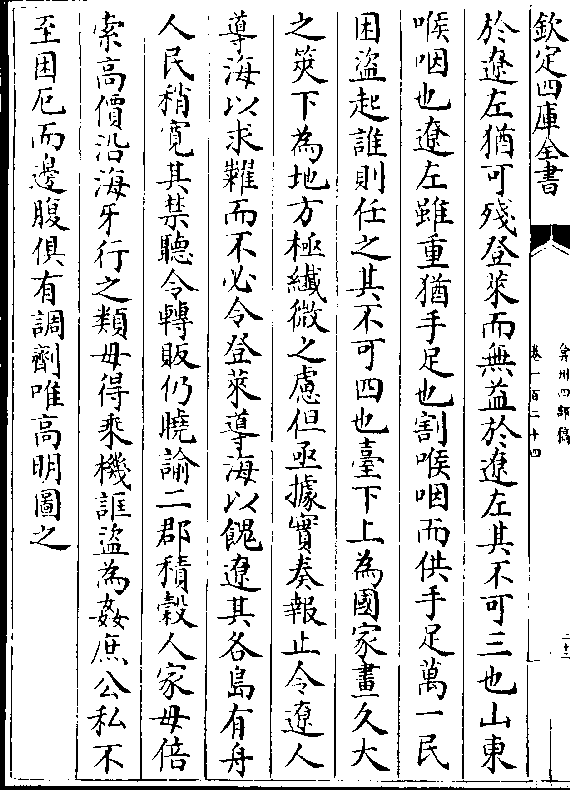 欽定四庫全書
弇州四部稿
卷一百二十四
二十二
於遼左猶可殘登萊而無益於遼左其不可三也山東
喉咽也遼左雖重猶手足也割喉咽而供手足萬一民
困盜起誰則任之其不可四也臺下上為國家畫久大
之筴下為地方極纖微之慮但亟據實奏報止令遼人
導海以求糴而不必令登萊導海以餽遼其各島有舟
人民稍寬其禁聽令轉販仍曉諭二郡積穀人家毋倍
索高價沿海牙行之類毋得乘機誆盜為姦庶公私不
至困厄而邊腹俱有調劑唯高明圖之